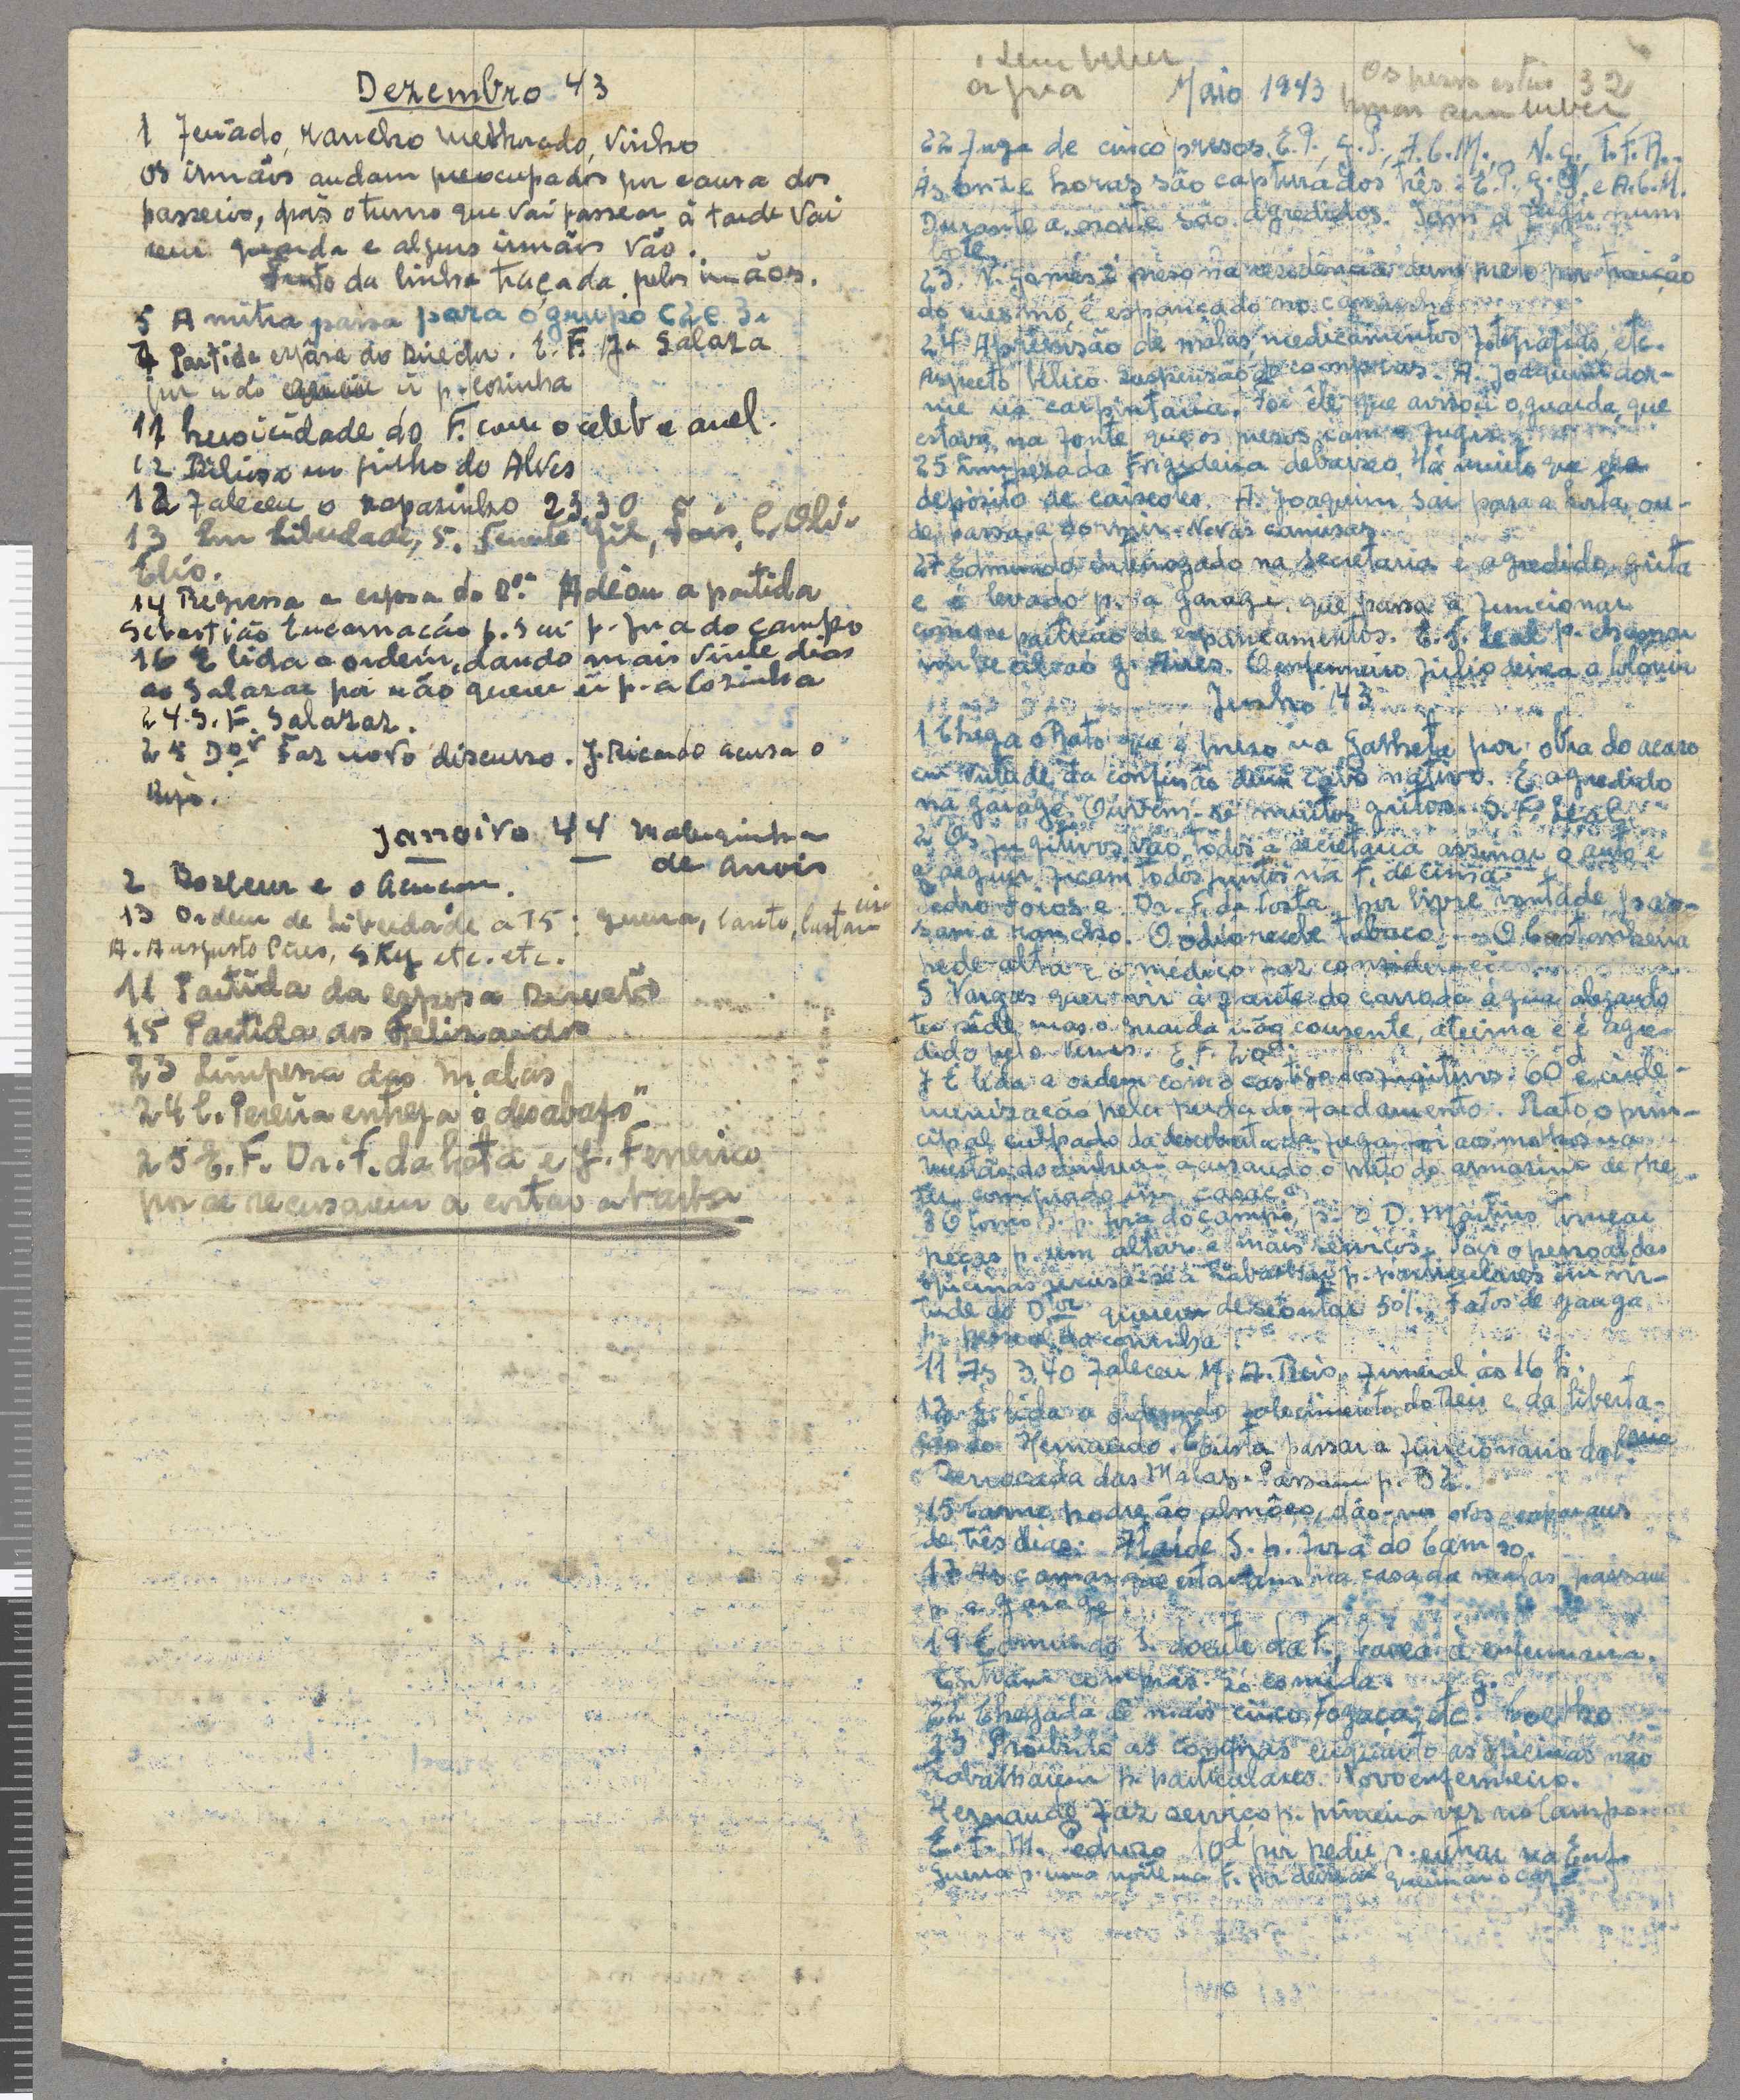 Dezembro 43
1 Feriado, rancho melhorado, vinho
os irmãos andam preocupados por causa dos
passeios, pois o turno que vai passear à tarde vai
sem guarda e alguns irmãos vão.
Fruto da linha traçada pelos irmãos.
5 A mitra passa para o grupo C2 e 3.
7 Partida espôsa do Director. E. F. Ja Salaza
por não ir p. cosinha
11 heroicidade do F. com o celeb e anel.
12 do Alves
12 Faleceu o raparinho 23,30
13 Em Liberdade, S. Gil, Fois, C. Oli.
Elio.
14 Regressa a esposa do D.or Adiou a partida
Sebastião Encarnação p. Sai p. fora do campo
16 É lida a ordem, dando mais vinte dias
ao Salazar por não querer ir p. a Cosinha
24. S. F. Salazar.
25 D.or Faz novo discurso. J. Ricardo acusa o
Rijo.
Janeiro 44
de Anois
2 e o
13 Ordem de Liberdade a 15: Guerra, Couto,
A. Augusto Pires, Sky etc. etc.
11 Partida da esposa Director
15 Partida dos Felizardos
23 Limpesa das malas
24 C. Pereira entrega o "desabafo"
25 E. F. Dr. F. da Costa e J. Ferreira
por se recusarem a cortar a barba
sem beber
água
Os presos estão 32
horas sem beber
Maio 1943
22 Fuga de cinco presos. E. P., G. P., A. C. M., N. G., F. F. R..
Às onze horas são capturados três: E. P. G. P. e A. C. M.
Durante a noite são agredidos. Iam a fugir num
bote.
23. N. Gomes é preso na residência dum preto por traição
do mesmo, é espancado no caminho
24 Apreensão de malas, medicamentos, fotografias, etc.
Aspecto bélico. suspensão de compras. A. Joaquim dor-
me na carpintaria. Foi êle que avisou o guarda, que
estava na fonte que os presos iam a fugir.
25 Frigideira debaixo, há muito que era
depósito de caixotes. A. Joaquim sai para a horta, on-
de passa a dormir. Novas camisas
27 Edmundo interrogado na secretaria é agredido, grita
e é levado p. a garage, que passa a funcionar
como repartição de espancamentos. E. F. Leal p. chamar
imbecil ao G. Aires. O enfermeiro Júlio deixa a Colonia
Junho 43
1 Chega o Rato que é preso na Galheta por obra do acaso
em virtude da confusão dum cabo nativo. É agredido
na garage. Ouvem-se muitos gritos. S. F. Leal.
2 Os fugitivos vão todos à secretaria assinar o auto e
a seguir ficam todos juntos na F. de cima
Pedro Soares e Dr. F. da Costa, por livre vontade, pas-
sam a rancho. O odio recebe tabaco. O Castanheira
pede alta e o médico faz
5 Vargas quer vir à frente do carro da água alegando
ter sêde, mas o guarda não consente, ateima e é agre-
dido pelo Neves. E. F. 20 d.
7 É lida a ordem com o castigo dos fugitivos: 60 d e inde-
munisação pela perda do fardamento. Rato, o prin-
cipal culpado da descoberta da fuga,
questão do dinheiro acusando o preto do armazim de lhe
ter comprado um casaco
8 O torno p. p. fora do campo, p. o D. Martins tornear
peças p. um altar e mais serviços. Pois o pessoal das
oficinas recusa-se a trabalhar p. particulares em vir-
tude do D.or querer descontar 50%. Fatos de ganga
p. pessoal da cosinha.
11 Às 3,40 Faleceu M. A. Reis, funeral às 16 h.
12 É lida a ordem do falecimento do Reis e da liberta-
ção do Hernando. Consta passar a funcionario da Colonia
Derrocada das Malas. Passam p. B 2.
15 Carne podre ao almôço, dão-nos ovos
de três dias. Ataide S. p. fora do Campo.
17 As camas que estavam na casa da malas passam
p. a garage
19 Edmundo S. doente da F., baixa à enfermaria.
Entram compras. só comida.
22 Chegada de mais cinco, Fogaça, etc. Coelho
23 Proibido as compras enquanto as oficinas não
trabalharem p. particulares. Novo enfermeiro.
Hernando faz serviço p. primeira vez no Campo
E. F. M. Pedroso 10 d por pedir p. entrar na Enf.
Guerra p. uma noite na F. por deixar queimar o café